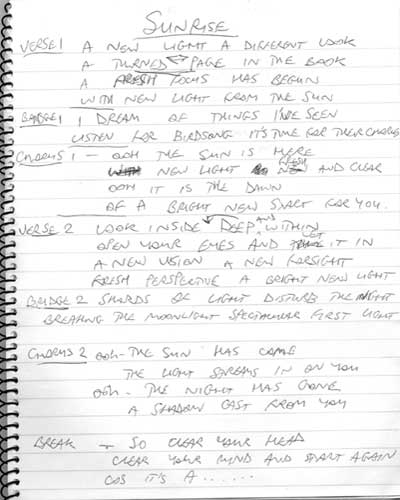 SUNRISE
VERSE 1 A NEW LIGHT A DIFFERENT LOOK
A TURNED PAGE IN THE BOOK
A FRESH FOCUS HAS BEGUN
WITH NEW LIGHT FROM THE SUN
BRIDGE 1 I DREAM OF THINGS I'VE SEEN
LISTEN FOR BIRDSONG IT'S TIME FOR THEIR CHORUS
CHORUS 1 - OOH THE SUN IS HERE
WITH NEW LIGHT FRESH AND CLEAR
OOH IT IS THE DAWN
OF A BRIGHT NEW START FOR YOU.
VERSE 2 LOOK INSIDE DEEP AND WITHIN
OPEN YOUR EYES AND LET IT IN
A NEW VISION A NEW FORSIGHT
FRESH PERSPECTIVE A BRIGHT NEW LIGHT
BRIDGE 2 SHARDS OF LIGHT DISTURB THE NIGHT
BREAKING THE MOONLIGHT SPECTACULAR FIRST LIGHT
CHORUS 2 OOH - THE SUN HAS COME
THE LIGHT STREAMS IN ON YOU
OOH - THE NIGHT HAS GONE
A SHADOW CAST FROM YOU
BREAK - SO CLEAR YOUR HEAD
CLEAR YOUR MIND AND START AGAIN
COS IT'S A ......